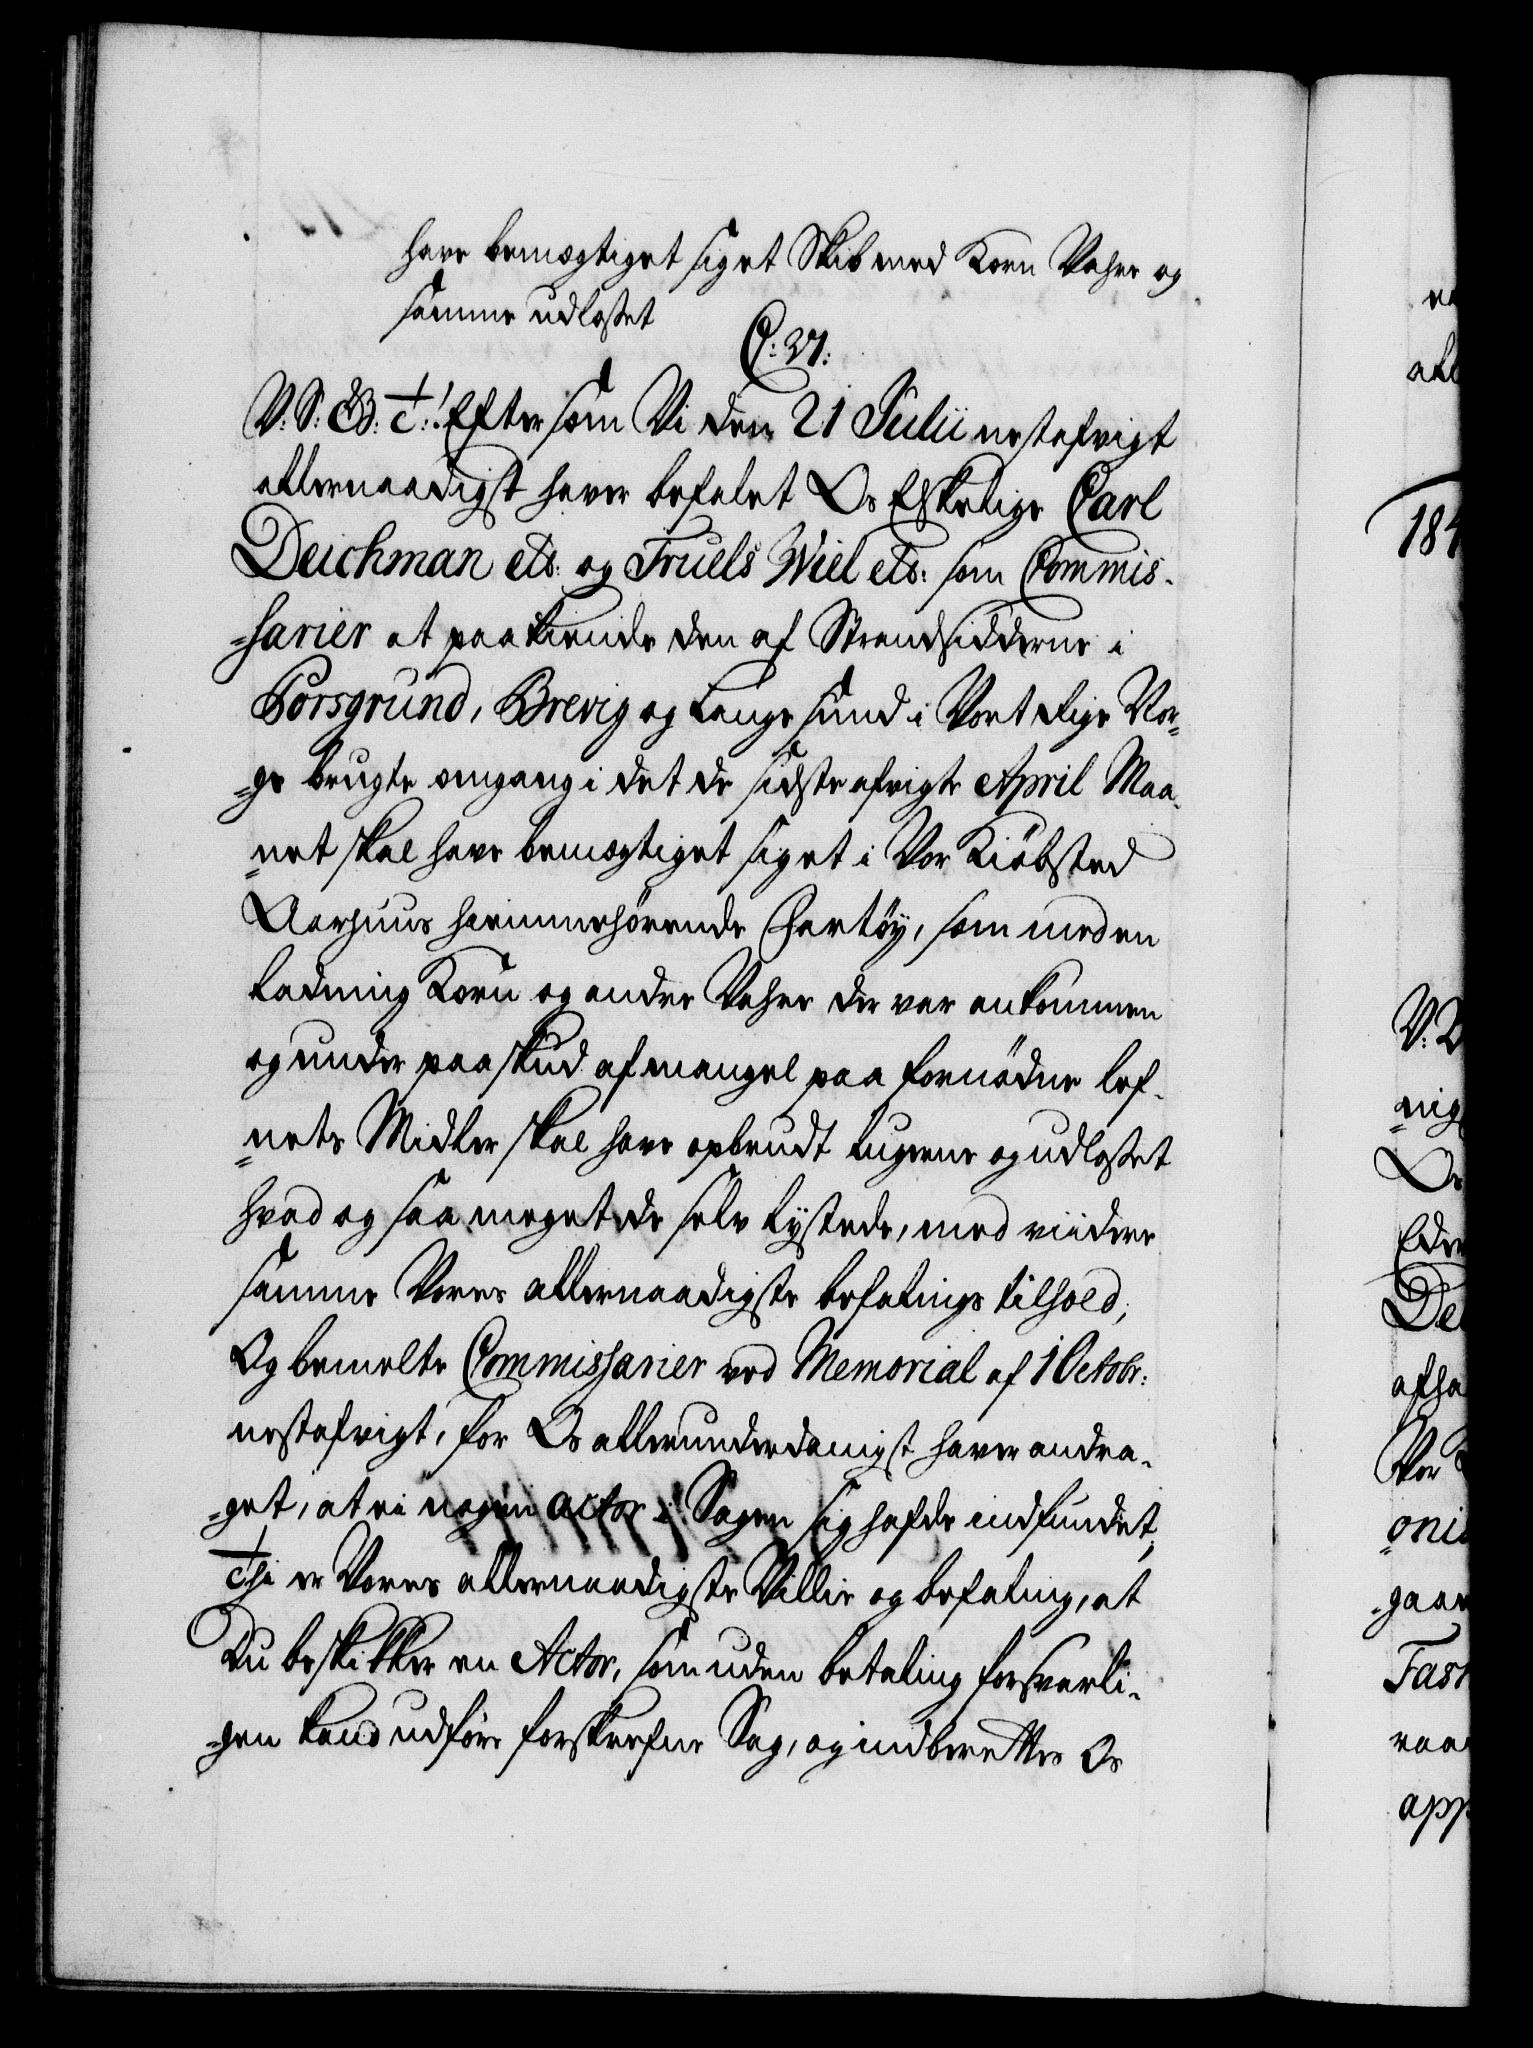 have bemægtiget sig et Skib med Korn Vahre og
samme udlosset
C: VI:
V: S: G: T:! Eftersom Vi den 21 Julii nestafvigt
allernaadigst haver befalet Os Elskelige Carl
Deichman etc: og Truels Wiel etc: som Commis-
-sarier at paakiende den af Strandsidderne i
Porsgrund, Brevig og Langesund i Vort Rige Nor-
-ge brugte omgang i det de sidste afvigte April Maa-
-net skal have bemægtiget sig et i Vor Kiöbsted
Aarhuus hiemmehörende Fartöy, som med en
Ladning Korn og andre Vahre der var ankommen
og under paaskud af mangel paa fornödne lef-
-nets Midler skal have opbrudt lugerne og udlosset
hvad og saa meget de selv lystede, med viidere
samme Vores allernaadigste befalings tilhold;
Og bemelte Commissarier ved Memorial af 1 Octobr:
nestafvigt, for Os allerunderdanigst haver andra-
-get, at ei nogen Actor i Sagen sig hafde indfundet;
Thi er Vores allernaadigste Villie og befaling, at
Du beskikker en Actor, som uden betaling forsvarli-
-gen kand udföre forskrefne Sag, og indberettes Os
184